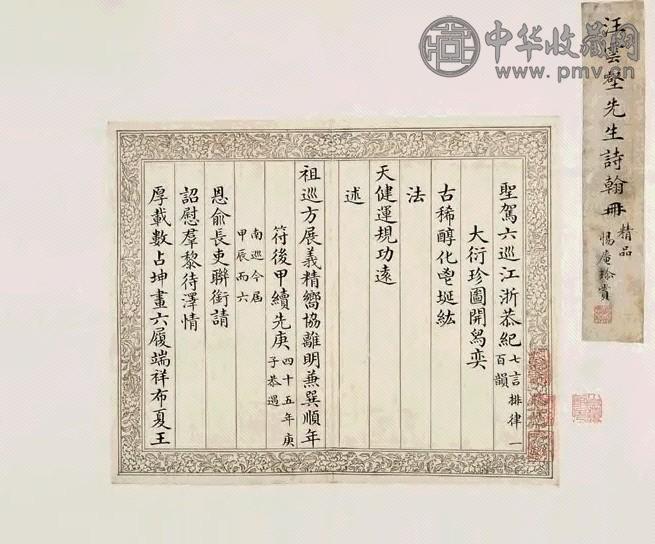 中华收藏网
www.pmv.cn
汪雲壑先生詩翰冊
精品
惕庵珍賞
聖駕六巡江浙恭紀七言排律一百韻
大衍珍圖開舄奕
古稀醇化邕埏紘
法
天健運規功遠
述
祖巡方展義精嚮協離明兼巽順年
符後甲續先庚四十五年庚子恭遇
南巡今屆甲辰丙六
恩俞長吏聯銜請
詔慰羣黎待澤情
厚載數占坤畫六履端祥布夏王